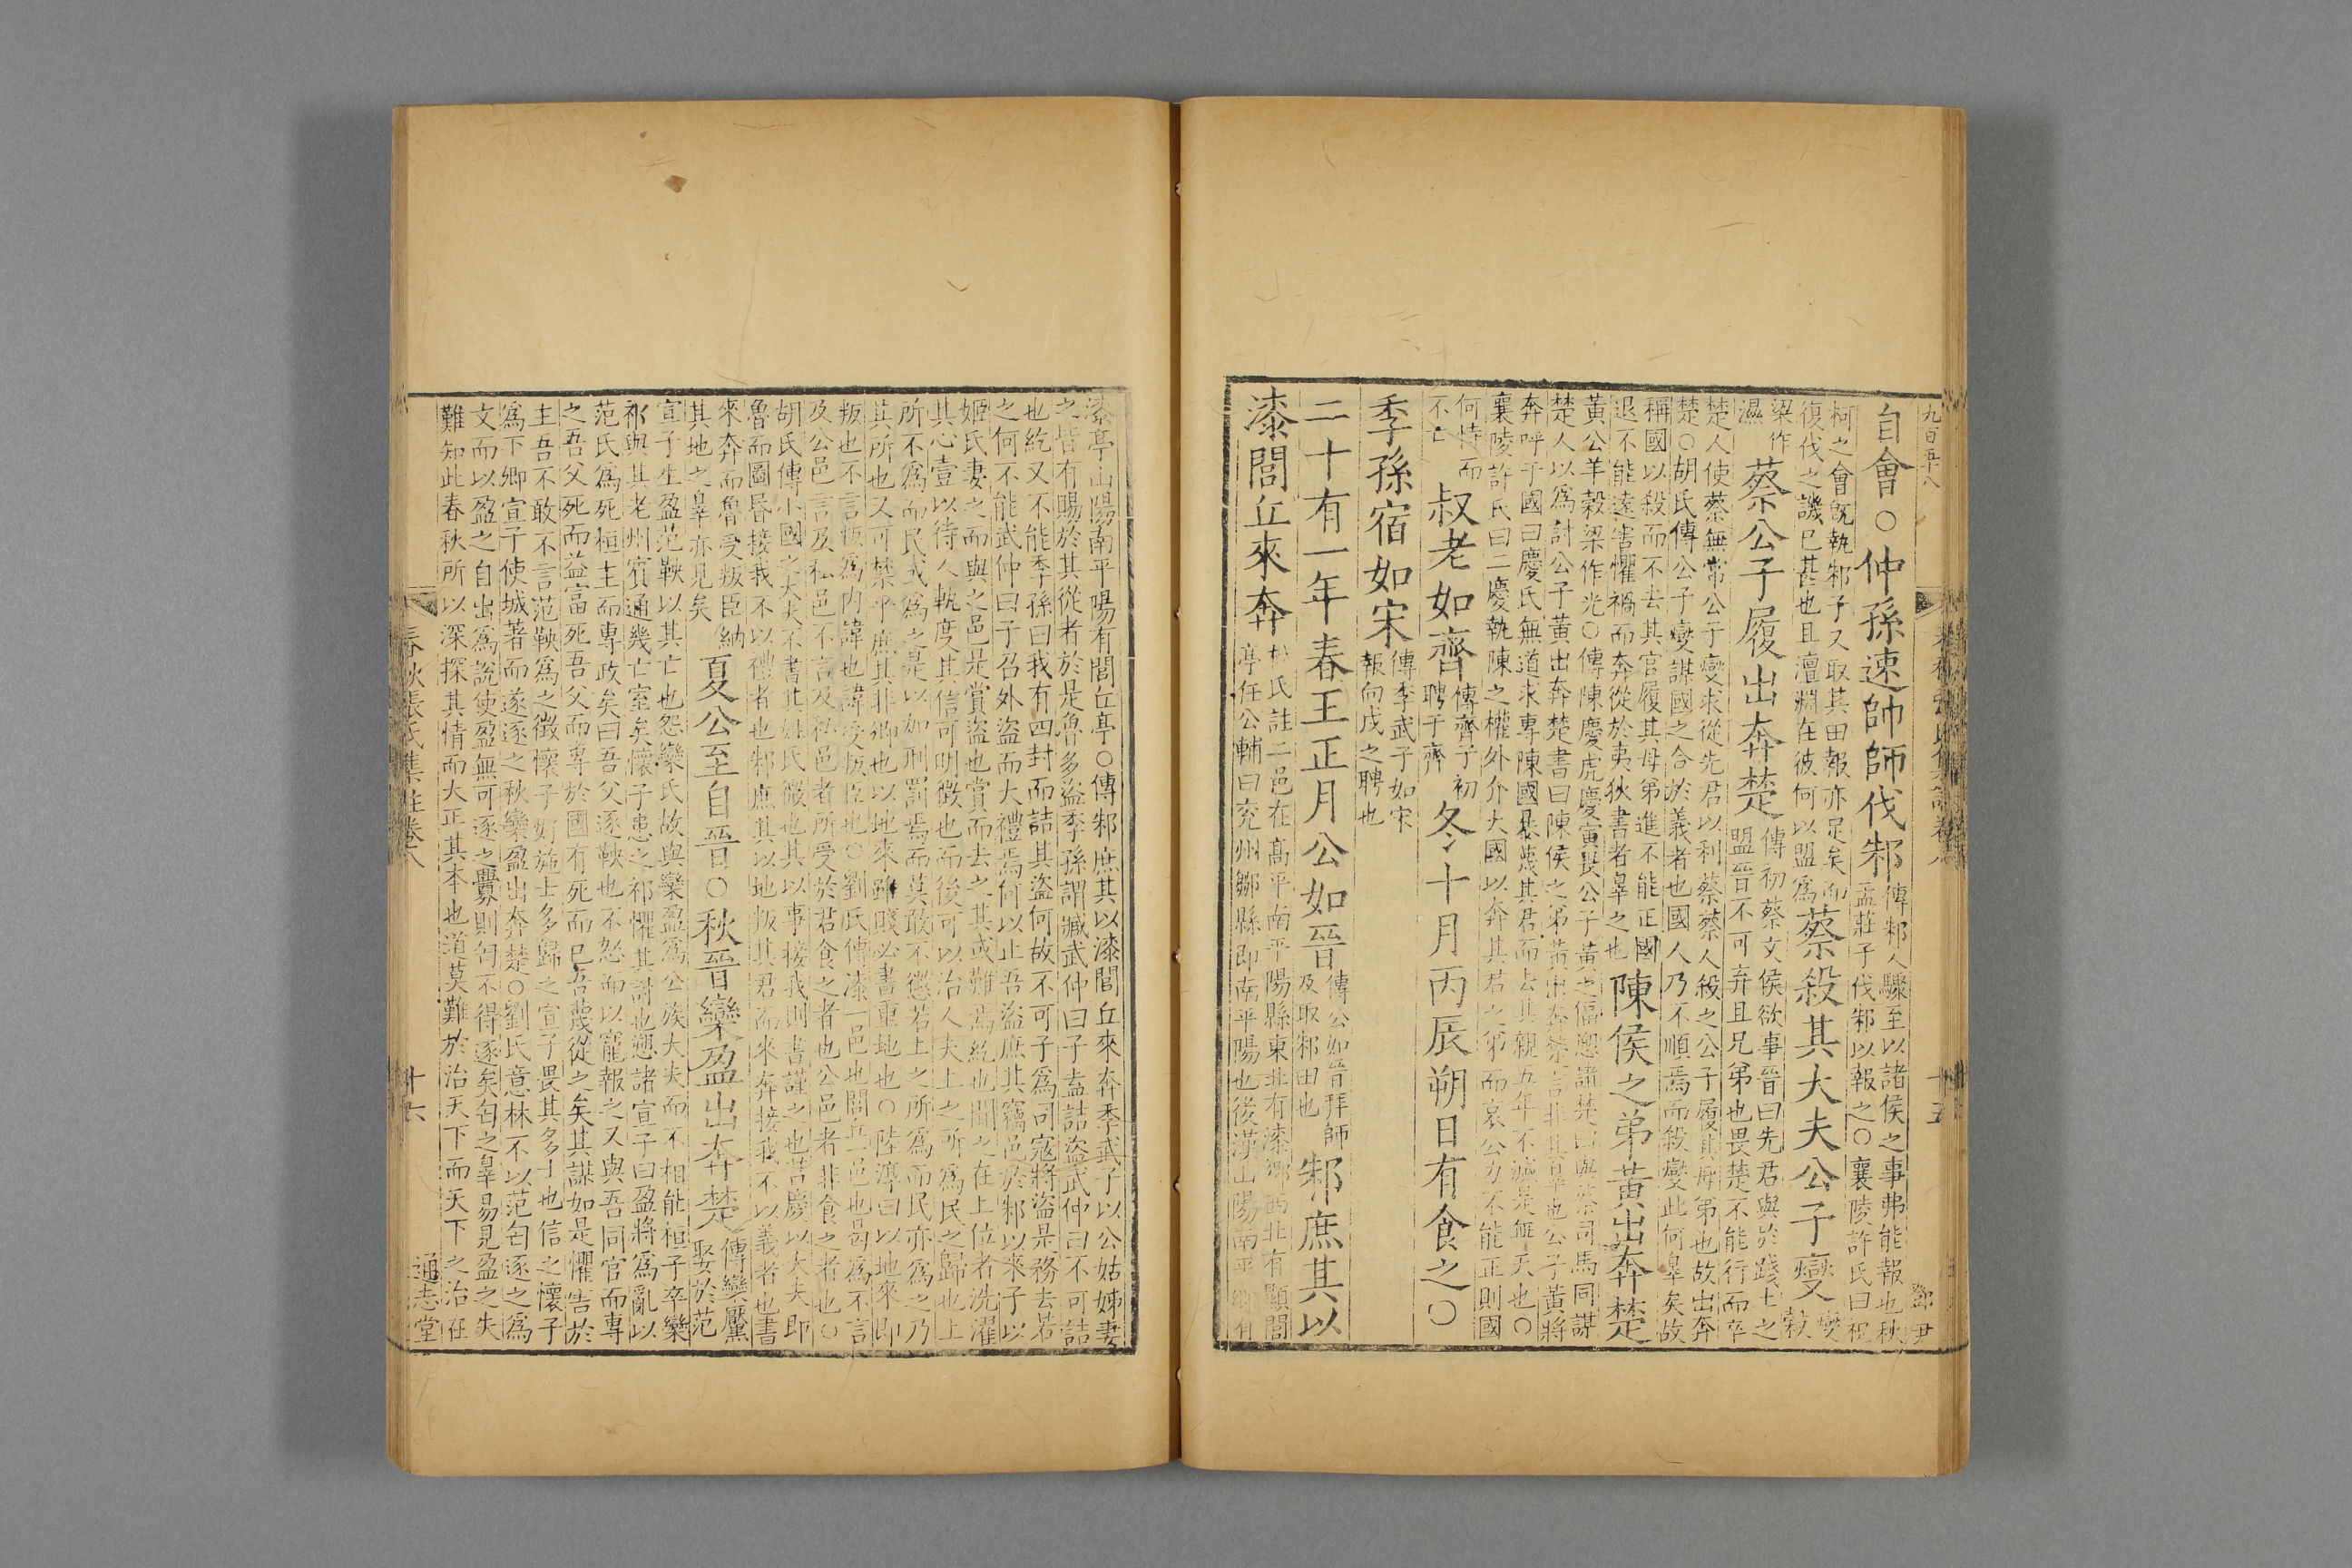 九百五十八
春秋張氏集註卷八
十五
鄧尹
自會○仲孫速帥師伐邾
傳邾人驟至以諸侯之事弗能報也秋
孟莊子伐邾以報之○襄陵許氏曰祝
柯之會既執邾子又取其田報亦足矣而
復伐之譏已甚也且澶淵在彼何以盟爲
蔡殺其大夫公子燮
燮
榖
梁作
濕
蔡公子履出奔楚
傳初蔡文侯欲事晉曰先君與於踐土之
盟晉不可弃且兄弟也畏楚不能行而卒
楚人使蔡無常公子燮求從先君以利蔡蔡人殺之公子履其母弟也故出奔
楚○胡氏傳公子燮謀國之合於義者也國人乃不順焉而殺燮此何辠矣故
稱國以殺而不去其官履其母弟進不能正國
退不能遠害懼禍而奔從於夷狄書者辠之也
陳侯之弟黃出奔楚
黃公羊榖梁作光○傳陳慶虎慶寅畏公子黃之偪愬諸楚曰與蔡司馬同謀
楚人以爲討公子黃出奔楚書曰陳侯之弟黃出奔楚言非其辠也公子黃將
奔呼于國曰慶氏無道求專陳國暴蔑其君而去其親五年不滅是無天也○
襄陵許氏曰二慶執陳之權外介大國以奔其君之弟而哀公力不能正則國
何恃而
不亡
叔老如齊
傳齊子初
聘于齊
冬十月丙辰朔日有食之○
季孫宿如宋
傳季武子如宋
報向戌之聘也
二十有一年春王正月公如晉
傳公如晉拜師
及取邾田也
邾庶其以
漆閭丘來奔
杜氏註二邑在高平南平陽縣東北有漆鄉西北有顯閭
亭任公輔曰兗州鄒縣即南平陽也後漢山陽南平陽有
漆亭山陽南平陽有閭丘亭○傳邾庶其以漆閭丘來奔季武子以公姑姊妻
之皆有賜於其從者於是魯多盜季孫謂臧武仲曰子盍詰盜武仲曰不可詰
也紇又不能季孫曰我有四封而詰其盜何故不可子爲司寇將盜是務去若
之何不能武仲曰子召外盜而大禮焉何以止吾盜庶其竊邑於邾以來子以
姬氏妻之而與之邑是賞盜也賞而去之其或難焉紇也聞之在上位者洗濯
其心壹以待人軌度其信可明徵也而後可以治人夫上之所爲民之歸也上
所不爲而民或爲之是以加刑罰焉而莫敢不懲若上之所爲而民亦爲之乃
其所也又可禁乎庶其非卿也以地來雖賤必書重地也○陸淳曰以地來即
叛也不言叛爲內諱也諱受叛臣也○劉氏傳漆一邑也閭丘一邑也曷爲不言
及公邑言及私邑不言及私邑者所受於君食之者也公邑者非食之者也○
胡氏傳小國之大夫不書其姓氏微也其以事接我則書謹之也莒慶以大夫即
魯而圖昬接我不以禮者也邾庶其以地叛其君而來奔接我不以義者也書
來奔而魯受叛臣納
其地之辠亦見矣
夏公至自晉○秋晉欒盈出奔楚
傳欒黶
娶於范
宣子生盈范鞅以其亡也怨欒氏故與欒盈爲公族大夫而不相能桓子卒欒
祁與其老州賓通幾亡室矣懷子患之祁懼其討也愬諸宣子曰盈將爲亂以
范氏爲死桓主而專政矣曰吾父逐鞅也不怒而以寵報之又與吾同官而專
之吾父死而益富死吾父而專於國有死而已吾蔑從之矣其謀如是懼害於
主吾不敢不言范鞅爲之徵懷子好施士多歸之宣子畏其多士也信之懷子
爲下卿宣子使城著而遂逐之秋欒盈出奔楚○劉氏意林不以范匄逐之爲
文而以盈之自出爲說使盈無可逐之釁則匄不得逐矣匄之辠易見盈之失
難知此春秋所以深探其情而大正其本也道莫難於治天下而天下之治在
春秋張氏集註卷八
十六
通志堂